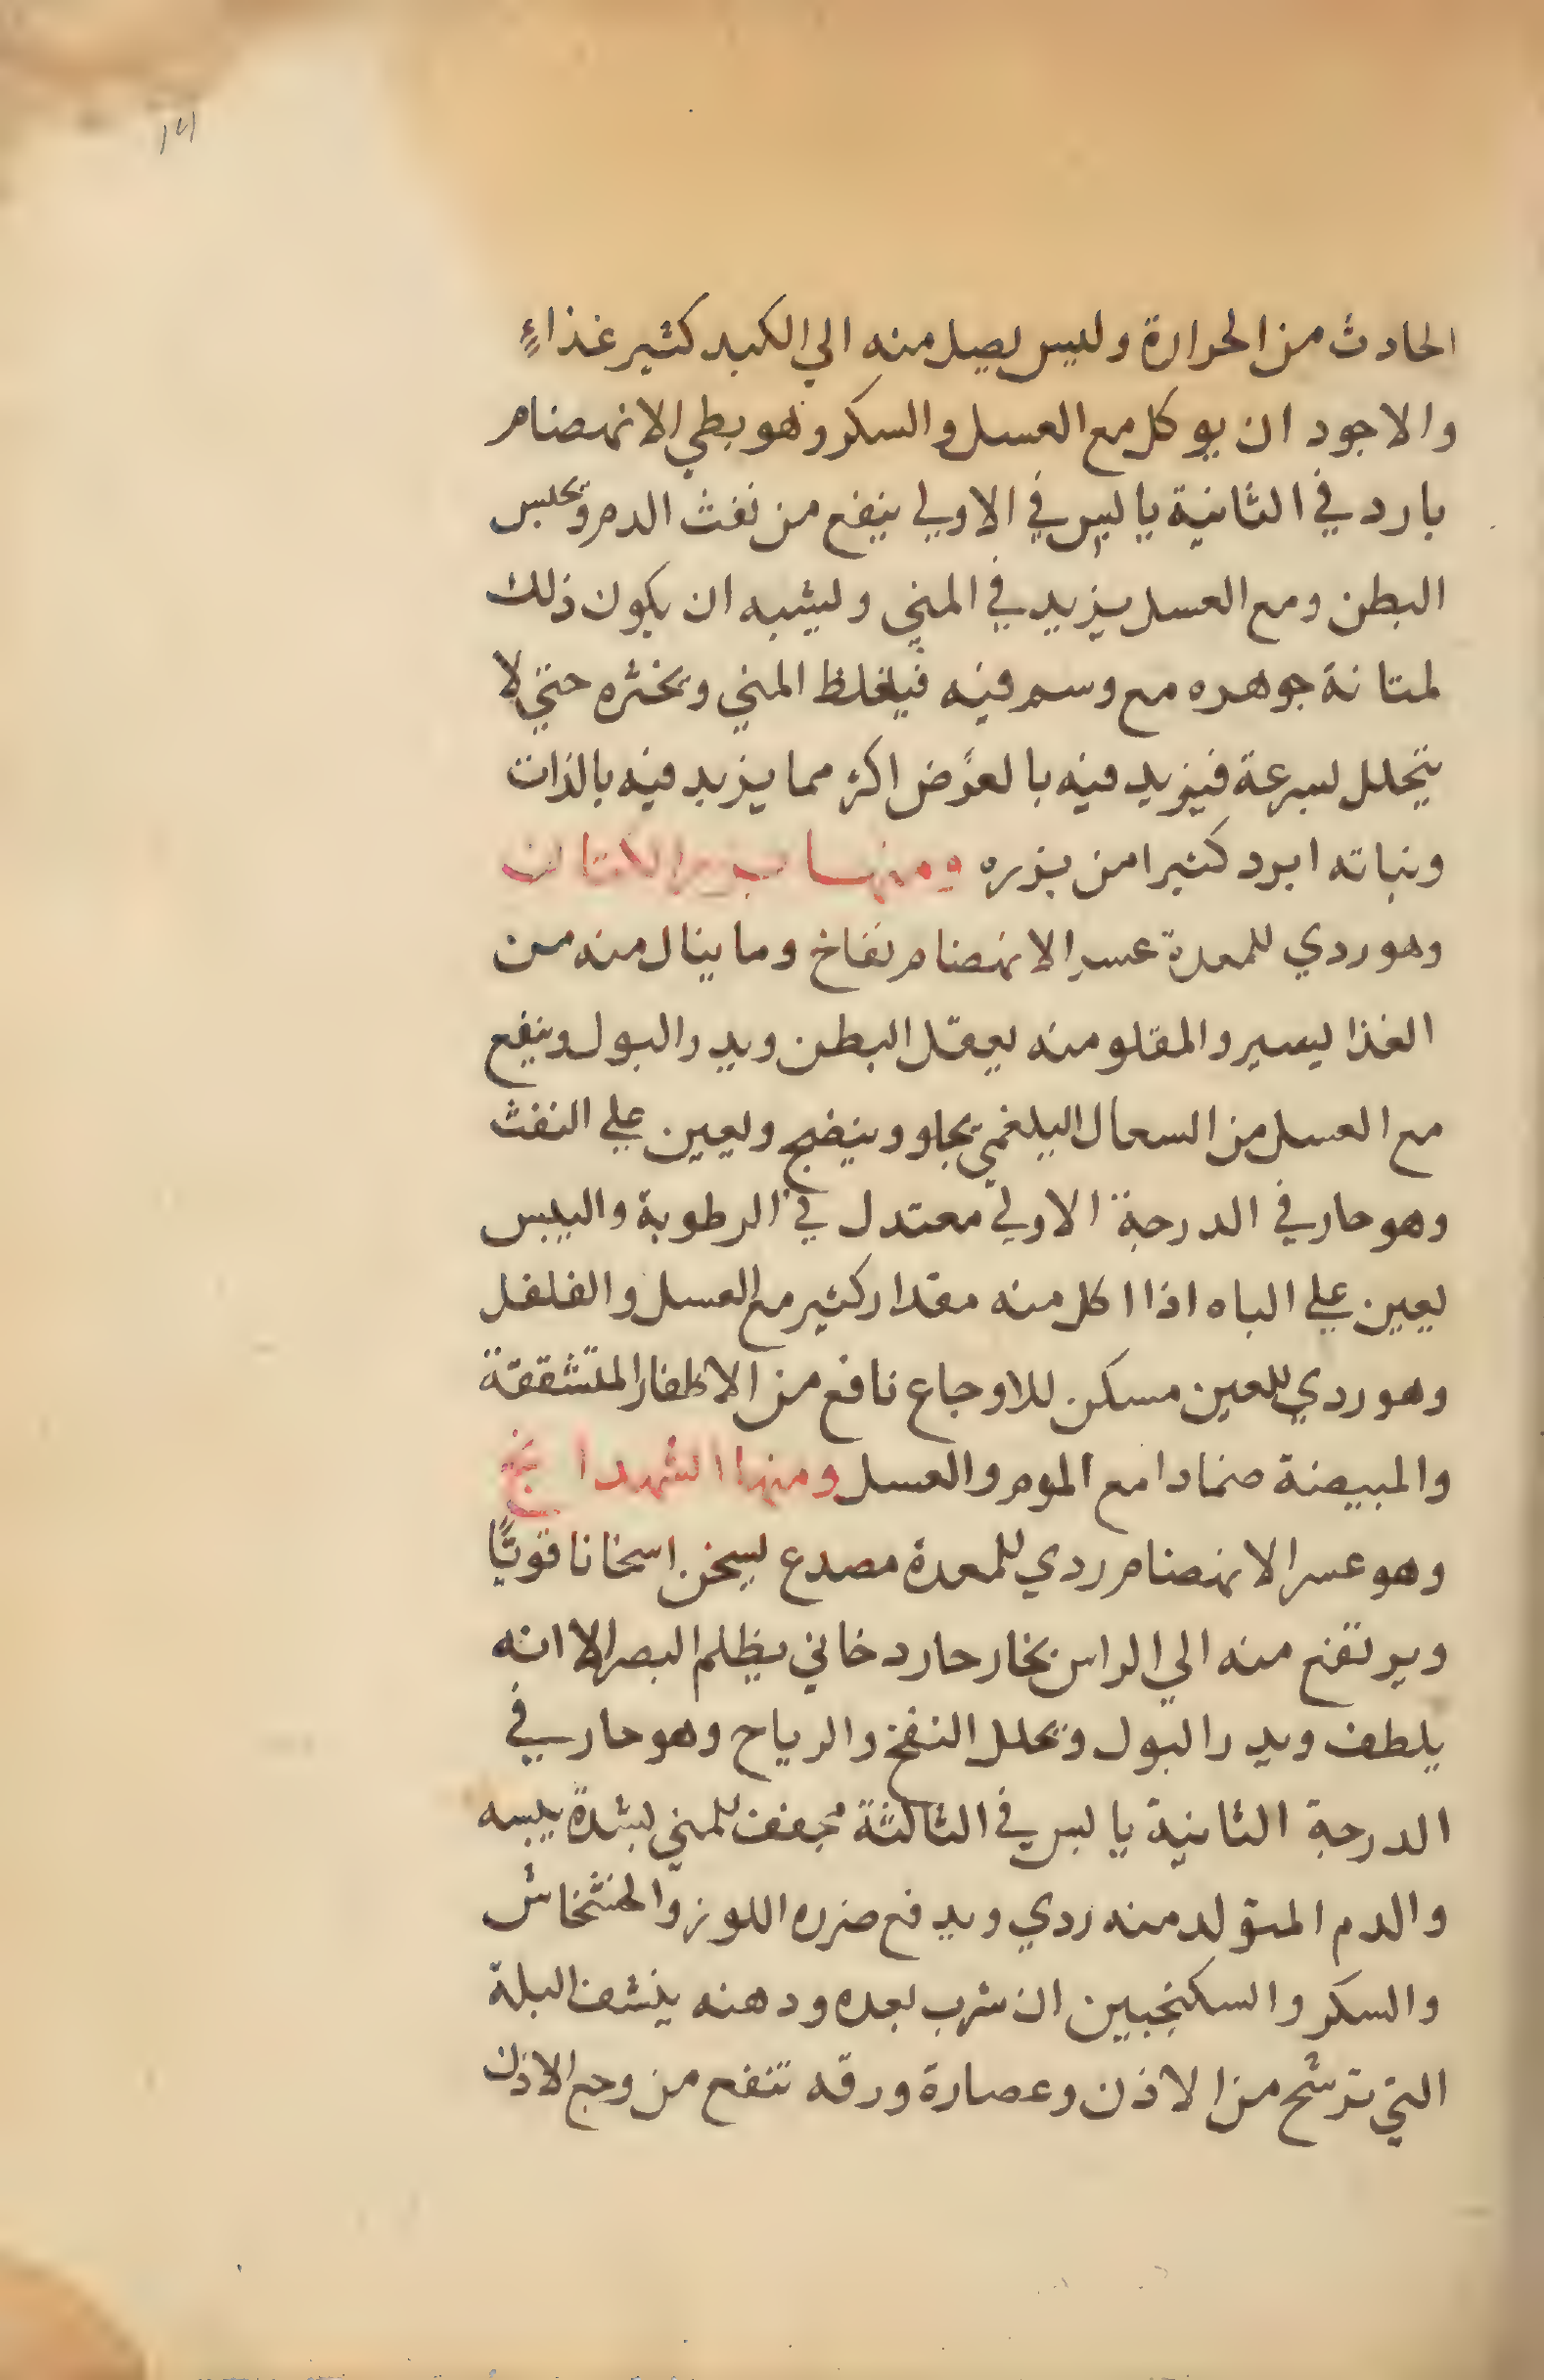 ١٤١
الحادث من الحرارة وليس يصل منه الي الكبد كثير غذاءٍ
والاجود ان يوكل مع العسل والسكر وهو بطي الانهضام
بارد في الثانية يابس في الاولي ينفع من نفث الدم ويحبس
البطن ومع العسل يزيد في المني وليشبه ان يكون ذلك
لمتانة جوهره مع وسم فيه فيغلظ المني ويخثره حتي لا
يتحلل بسرعة فيزيد فيه بالعرض اكثر مما يزيد فيه بالذات
ونباته ابرد كثيرا من بزره ومنها بزر الكتان
وهو ردي للمعدة عسر الانهضام نفاخ وما ينال منه من
الغذا يسير والمقلو منه يعقل البطن ويدر البول وينفع
مع العسل من السعال البلغمي يجلو وينضج ويعين علي النفث
وهو حار في الدرجة الاولي معتدل في الرطوبة واليبس
يعين علي الباه اذا اكل منه مقدار كثير مع العسل والفلفل
وهو ردي للعين مسكن للاوجاع نافع من الاظفار المتشققة
والمبيضة ضمادا مع الموم والعسل ومنها الشهدانج
وهو عسر الانهضام ردي للمعدة مصدع يسخن اسخانا قويًا
ويرتفع منه الي الراس بخار حار دخاني يظلم البصر الا انه
يلطف ويدر البول ويحلل النفخ والرياح وهو حار في
الدرجة الثانية يابس في الثالثة مجفف للمني بشدة يبسه
والدم المتولد منه ردي ويدفع ضرره اللوز والخشخاش
والسكر والسكنجبين ان شرب بعده ودهنه ينشف البلة
التي ترشح من الاذن وعصارة ورقه تنفع من وجع الاذن